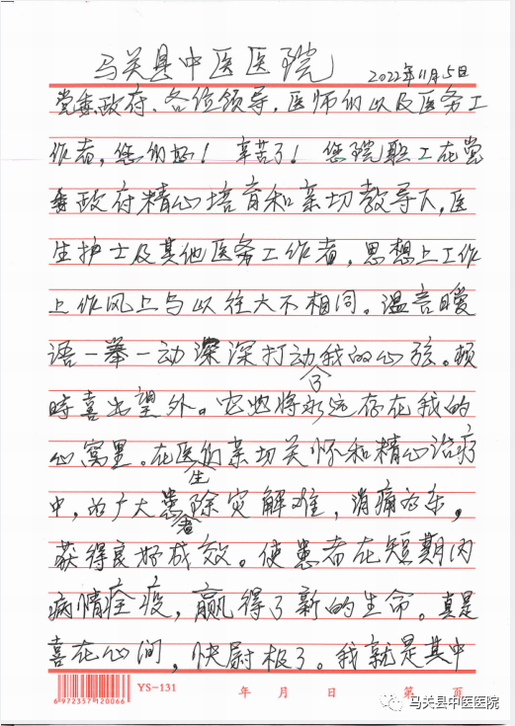 马关县中医医院 2022年11月5日
党委政府、各位领导，医师们以及医务工
作者，您们好！辛苦了！您院职工在党
委政府精心培育和亲切教导下，医
生护士及其他医务工作者，思想上工作
上作风上与以往大不相同。温言暖
语一举一动深深打动了我的心弦。顿
时喜出望外。它也将永远存在我的
心窝里。在医生们亲切关怀和精心治疗
中，为广大患者除灾解难，消痛为乐，
获得良好成效。使患者在短期内
病情痊疫，赢得了新的生命。真是
喜在心间，快尉极了。我就是其中
6 972357 120066
YS-131 年 月 日 第 页
马关县中医医院